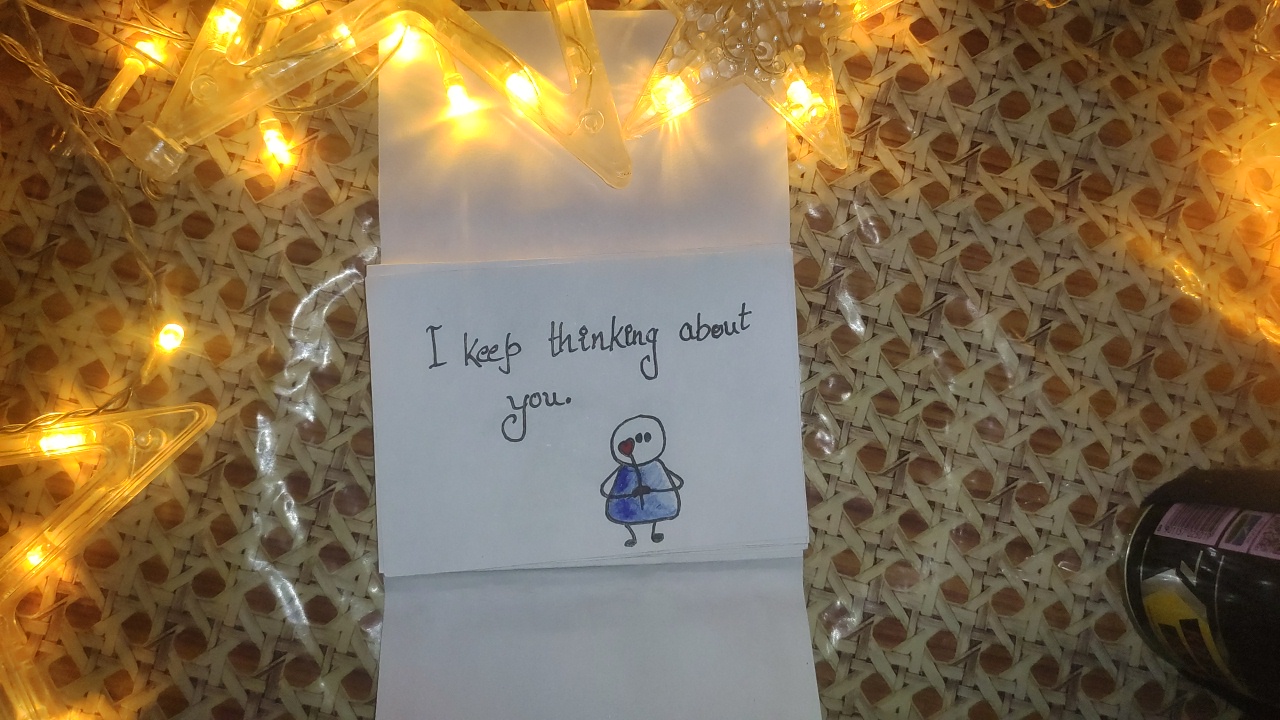 I keep thinking about
you.